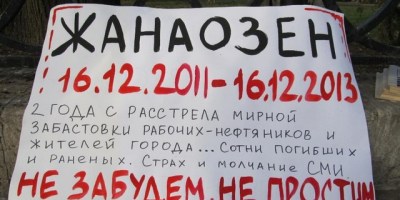 ЖАНАОЗЕН
16.12.2011-16.12.2013
2 ГОДА С РАССТРЕЛА МИРНОЙ
ЗАБАСТОВКИ РАБОЧИХ-НЕФТЯНИКОВ И
ЖИТЕЛЕЙ ГОРОДА... СОТНИ ПОГИБШИХ
И РАНЕНЫХ. СТРАХ И МОЛЧАНИЕ СМИ.
НЕ ЗАБУДЕМ, НЕ ПРОСТИМ